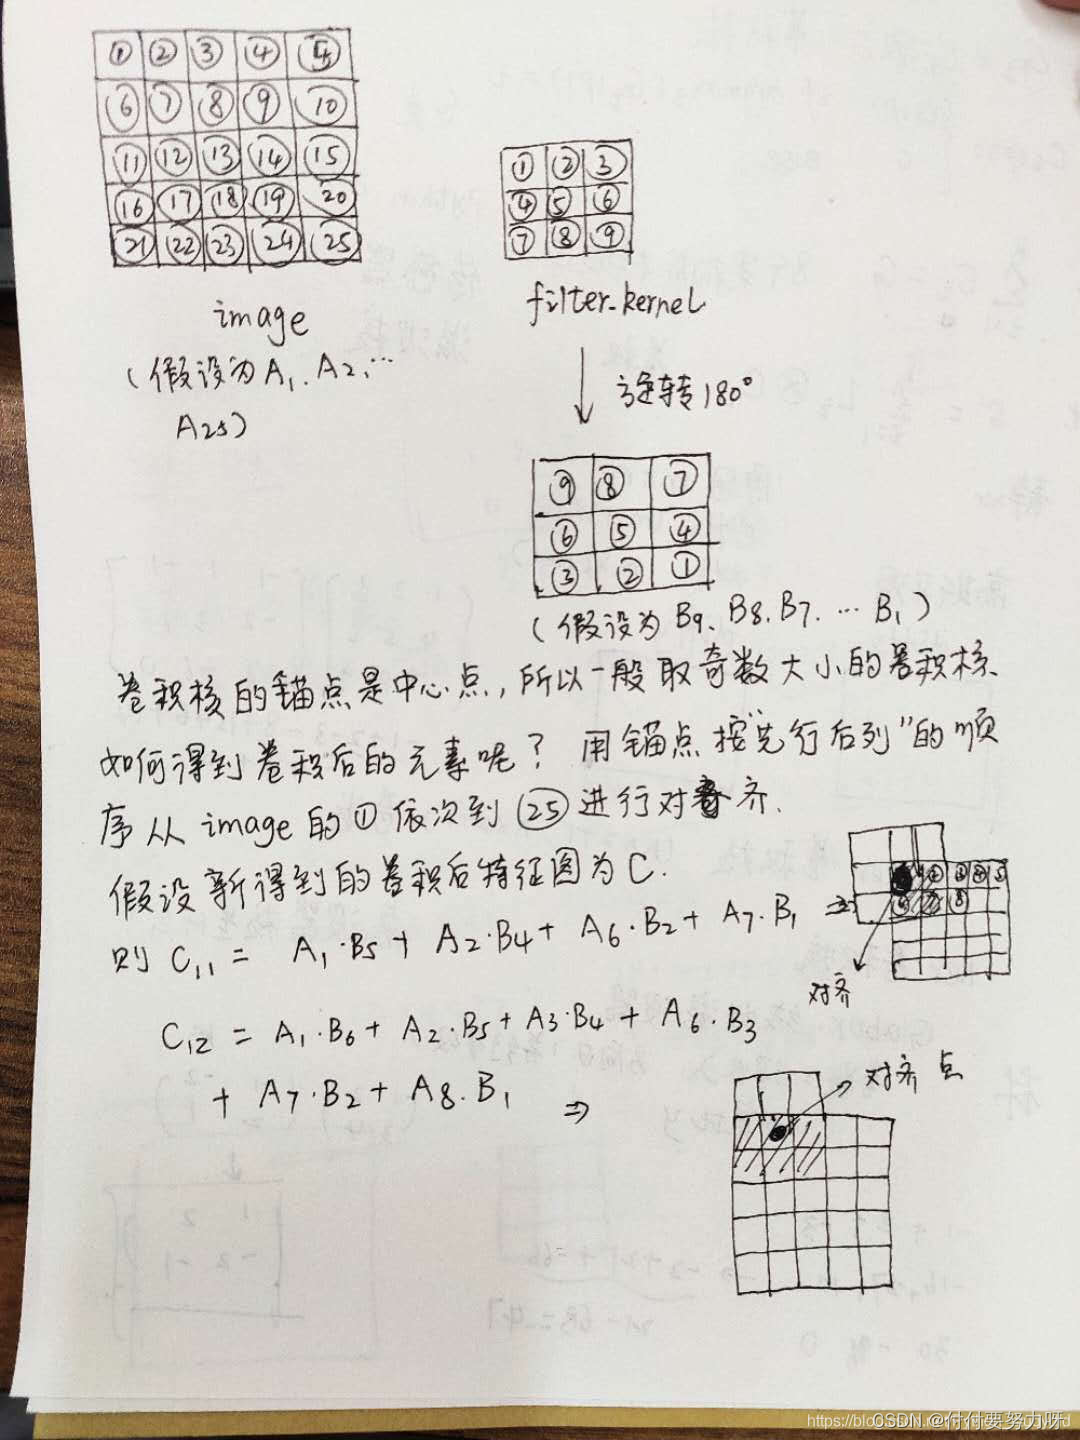 ① ② ③ ④ ⑤
⑥ ⑦ ⑧ ⑨ ⑩
⑪ ⑫ ⑬ ⑭ ⑮
⑯ ⑰ ⑱ ⑲ ⑳
㉑ ㉒ ㉓ ㉔ ㉕
image
(假设为A₁.A₂,…
A₂₅)
① ② ③
④ ⑤ ⑥
⑦ ⑧ ⑨
filter_kernel
旋转180°
⑨ ⑧ ⑦
⑥ ⑤ ④
③ ② ①
(假设为B₉、B₈、B₇.…B₁)
卷积核的锚点是中心点,所以一般取奇数大小的卷积核、
如何得到卷积后的元素呢?用锚点按"先行后列"的顺
序从image的①依次到㉕进行对齐.
假设新得到的卷积后特征图为C.
则 C₁₁ = A₁·B₅+ A₂·B₄+ A₆·B₂+ A₇·B₁ ⇒
② ③ ④ ⑤
⑧
对齐
C₁₂ = A₁·B₆+ A₂·B₅+A₃·B₄+ A₆·B₃
+ A₇·B₂+ A₈.B₁ ⇒
对齐点
CSDN @付付要努力呀